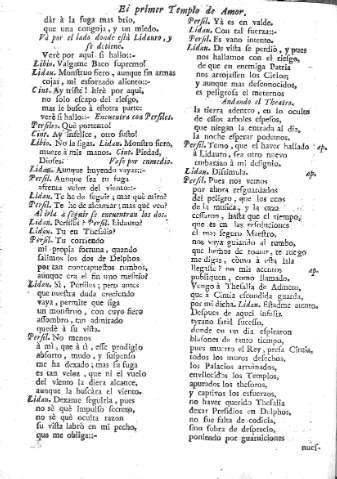 El primer Templo de Amor.
dar à la fuga mas brio,
que una congoja, y un miedo.
Và por el lado donde està Lidauro, y
se detiene.
Verè por aqui si hallo::-
Libio. Valgame Baco supremo!
Lidau. Monstruo fiero, aunque sin armas
cojas, mi esfuerzo aliento::-
Cint. Ay triste! Irè por aqui,
no solo escapo del riesgo,
mas le busco à estotra parte:
verè si hallo:- Encuentra con Persiles.
Persiles. Què portento!
Cint. Ay infelice, otro susto!
Libio. No la sigas. Lidau. Monstruo fiero,
muere à mis manos. Cint. Piedad,
Dioses. Vase por enmedio.
Lidau. Aunque huyendo vayas:-
Persil. Aunque sea tu fuga
afrenta veloz del viento:-
Lidau. Te he de seguir; mas què miro?
Persil. Te he de alcanzar; mas què veo?
Al irla à seguir se encuentran los dos.
Lidau. Persiles? Persil. Lidauro?
Lidau. Tu en Thesalia?
Persil. Tu corriendo
mi propia fortuna, quando
salimos los dos de Delphos
por tan contrapuestos rumbos,
aunque era el fin uno mesmo?
Lidau. Si, Persiles; pero antes
que nuestra duda creciendo
vaya, permite que siga
un monstruo, con cuyo fiero
assombro, tan admirado
quedè à su vista.
Persil. No menos
à mi, que à ti, esse prodigio
absorto, mudo, y suspenso
me ha dexado; mas su fuga
es tan veloz, que ni el vuelo
del viento la diera alcance,
aunque la buscàra el viento.
Lidau. Dexame seguirla, pues
no sè què impulso secreto,
no sè què oculta razon
su vista labrò en mi pecho,
que me obliga::-
Persil. Yà es en valde.
Lidau. Con tal fuerza::-
Persil. Es vano intento.
Lidau. De vista se perdiò, y pues
nos hallamos con el riesgo,
de que en enemiga Patria
nos arrojassen los Cielos;
y aunque mas desconocidos,
es peligrosa el meternos
Andando el Theatro.
la tierra adentro, en lo oculto
de essos arboles espesos,
que niegan la entrada al dia,
la noche esperar podemos.
Persil. Temo, que el haver hallado ap.
à Lidauro, sea otro nuevo
embarazo à mi designio.
Lidau. Dissimula. ap.
Persil. Pues nos vemos
por ahora resguardados
del peligro, que los ecos
de la musica, y la caza
cessaron, hasta que el tiempo,
que es en las resoluciones
el mas seguro Maestro,
nos vaya guiando al rumbo,
que hemos de tomar, te ruego
me digas, còmo à esta Isla
llegaste? no mis acentos ap.
publiquen, como llamado
Vengo à Thesalia de Adineo,
que à Cintia escondida guarda,
por mi dicha. Lidau. Estadme atento.
Despues de aquel infausto
tyrano fatal sucesso,
donde en un dia espiraron
blasones de tanto tiempo,
pues muerto el Rey, presa Cintia,
todos los muros desechos,
los Palacios arruinados,
envilecidos los Templos,
apurados los thesoros,
y captivos los esfuerzos,
no haver querido Thesalia
dexar Presidios en Delphos,
no fue falta de codicia,
sino sobra de desprecio,
poniendo por guarniciones
nues-